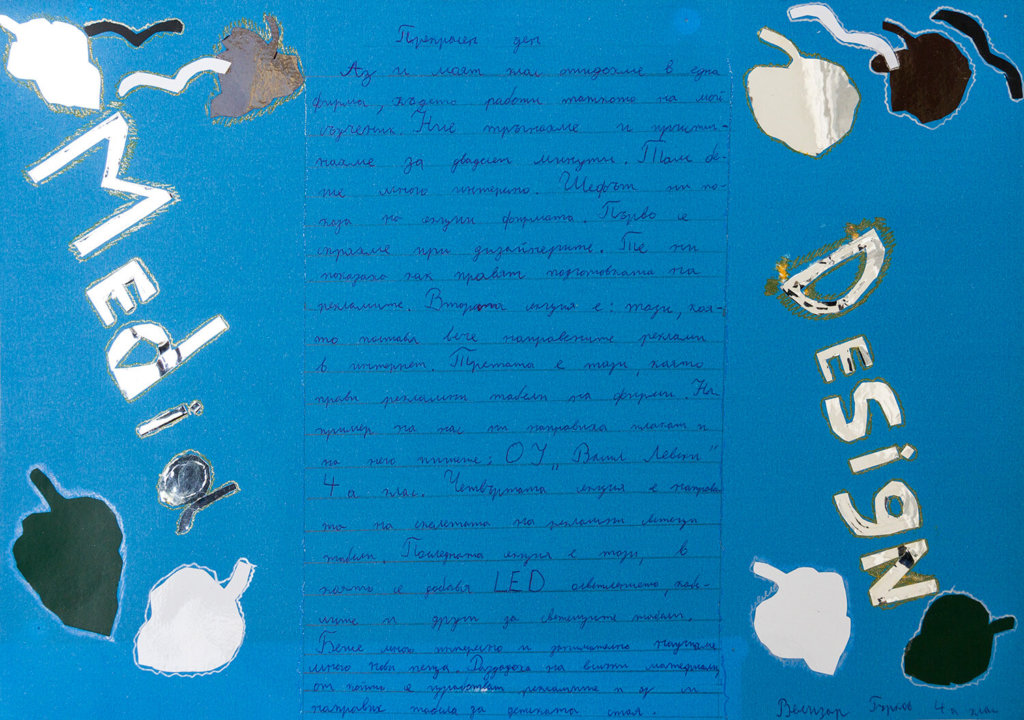 Media
Design
Прекрасен ден
Аз и моят клас отидохме в една
фирма, където работи таткото на мой
съученик. Ние тръгнахме и присти-
гнахме за двадесет минути. Там бе-
ше много интересно. Шефът ни по-
каза на екскурзия фирмата. Първо се
спряхме при дизайнерите. Те ни
показаха как правят подготовката на
рекламите. Втората секция е: тази, коя-
то поставя вече направените реклами
в интернет. Третата е тази, която
прави рекламни табели на фирми. На-
пример на нас ни направиха плакат и
на него пишеше: ОУ „Васил Левски"
4 а клас. Четвъртата секция е направа-
та на скелетата на рекламни светещи
табели. Последната секция е тази, в
която се добавя LED осветлението, кабе-
лите и други за светещите табели.
Беше много интересно и научихме
много нови неща. Раздадоха ни всички материали,
от които се изработват рекламите и аз си
направих табела за детската стая.
Велизар 4 а клас